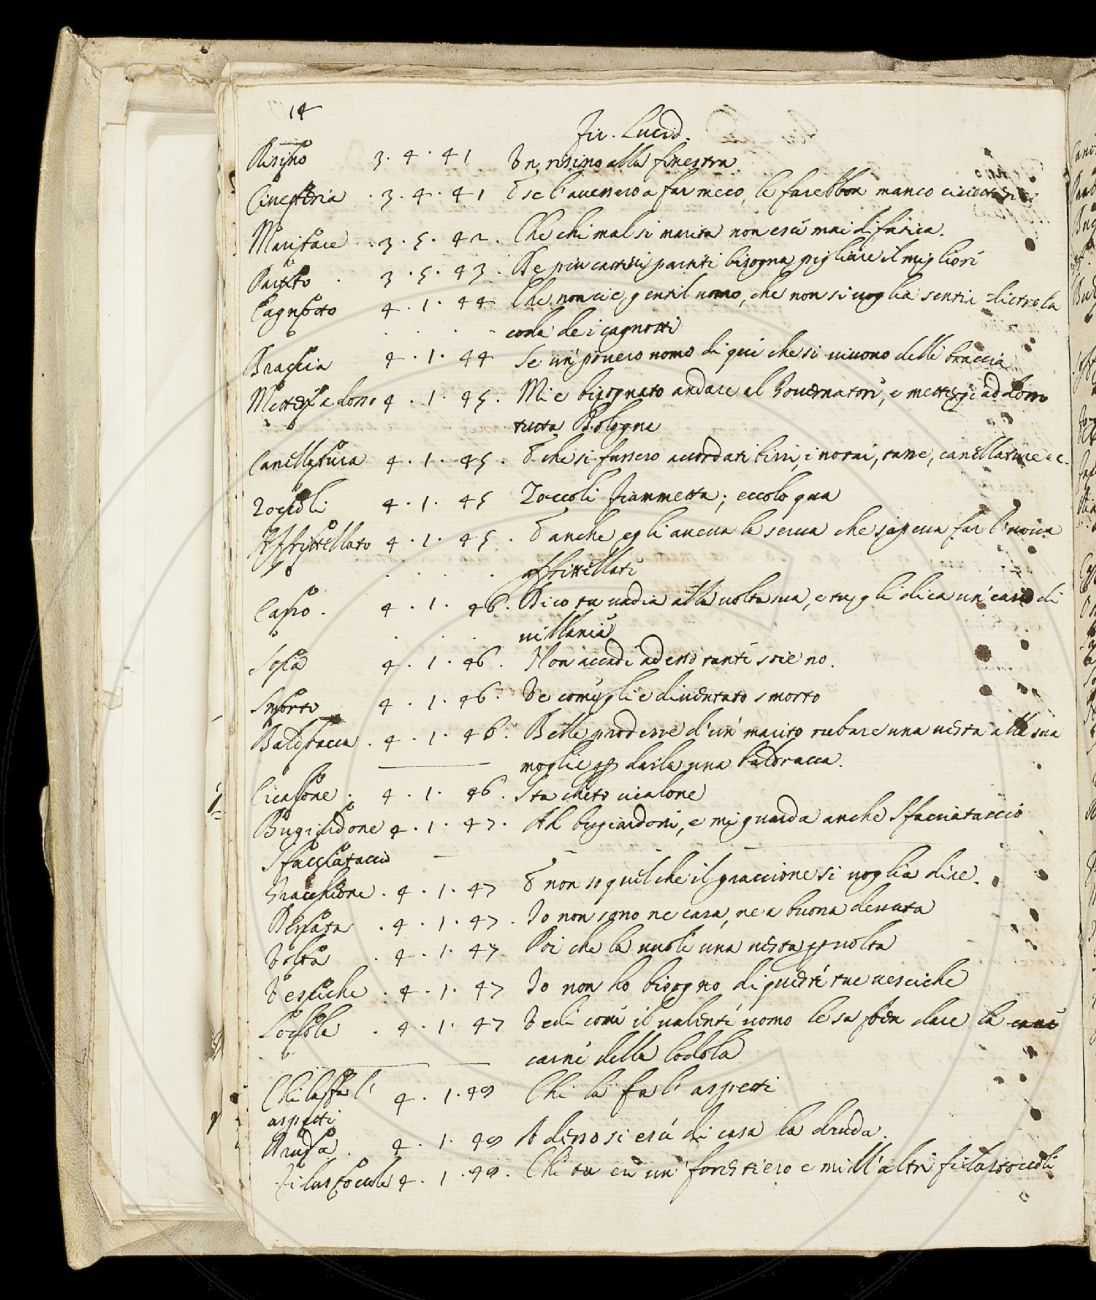 14
Fir. Lucid.
Risino 3. 4. 41 Un risino alla finestra
Civetteria . 3. 4. 41 E se l'avessero a far meco, le farebbon manco
Maritare . 3. 5. 42. Che chi mal si marita non esce mai di fatica.
Partito . 3. 5. 43. De più cattivi partiti bisogna pigliare il migliore
Cagnotto 4. 1. 44 Che non ci è gentil uomo, che non si voglia sentir dietro la
coda de i cagnotti
Braccia 4. 1. 44 Se un povero uomo di qui che si vivono delle braccia
Metter a lorre 4. 1. 45. Mi è bisognato andare al Governatore, e mettere
tutta Bologna
Cancellatura 4. 1. 45. E che si fussero accordati birri, i notai, tavole, cancellature ec.
Zoccoli 4. 1. 45 Zoccoli Fiammetta; eccolo qua
Affrittellato 4. 1. 45. E anche egli aveva la serva che sapeva far l'uova
affrittellate
Casso . 4. 1. 46. Dico tu vadia alla volta sua, e tu gli dica un carro di
villania
Scesa 4. 1. 46. Non accade adesso tante scene.
Smorto 4. 1. 46. Ve com'egli è diventato smorto
Baldracca . 4. 1. 46. Belle prodezze d'un marito rubare una vesta alla sua
moglie per darla a una baldracca.
Cicalone . 4. 1. 46. Sta cheto cicalone
Bugiardone 4. 1. 47. Ah bugiardone, e mi guarda anche sfacciataccio
Sfacciataccio
Gracchione . 4. 1. 47 E non so quel che il graccione si voglia dire.
Derrata . 4. 1. 47. Io non sono ne cara, ne a buona derrata
Volta . 4. 1. 47 Poi che la vuole una vesta per volta
Vesciche . 4. 1. 47 Io non ho bisogno di queste tue vesciche
Lodola . 4. 1. 47 Vedi come il valente uomo le sa ben dare la
carne della lodola
Chi la fa l'
aspetti 4. 1. 49 Chi la fa l'aspetti
Druda . 4. 1. 49 Adesso si esce di casa la druda.
Filastoccole 4. 1. 49. Chi tu eri un forestiero e mill'altre filastoccole